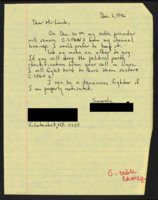 Dec. 2, 1992
Dear Mr. Lamb,
On Dec 20 my cable provider
will remove C-SPAN 2 from my channel
line-up. I would prefer to keep it.
Let me make an offer to you.
If you will deny the political party
identification from your call in lines
I will fight hard to have them restore
C-SPAN 2.
I can be a tenacious fighter if
I am properly motivated.
Sincerely
E. Setauket, NY. 11733
G - cable